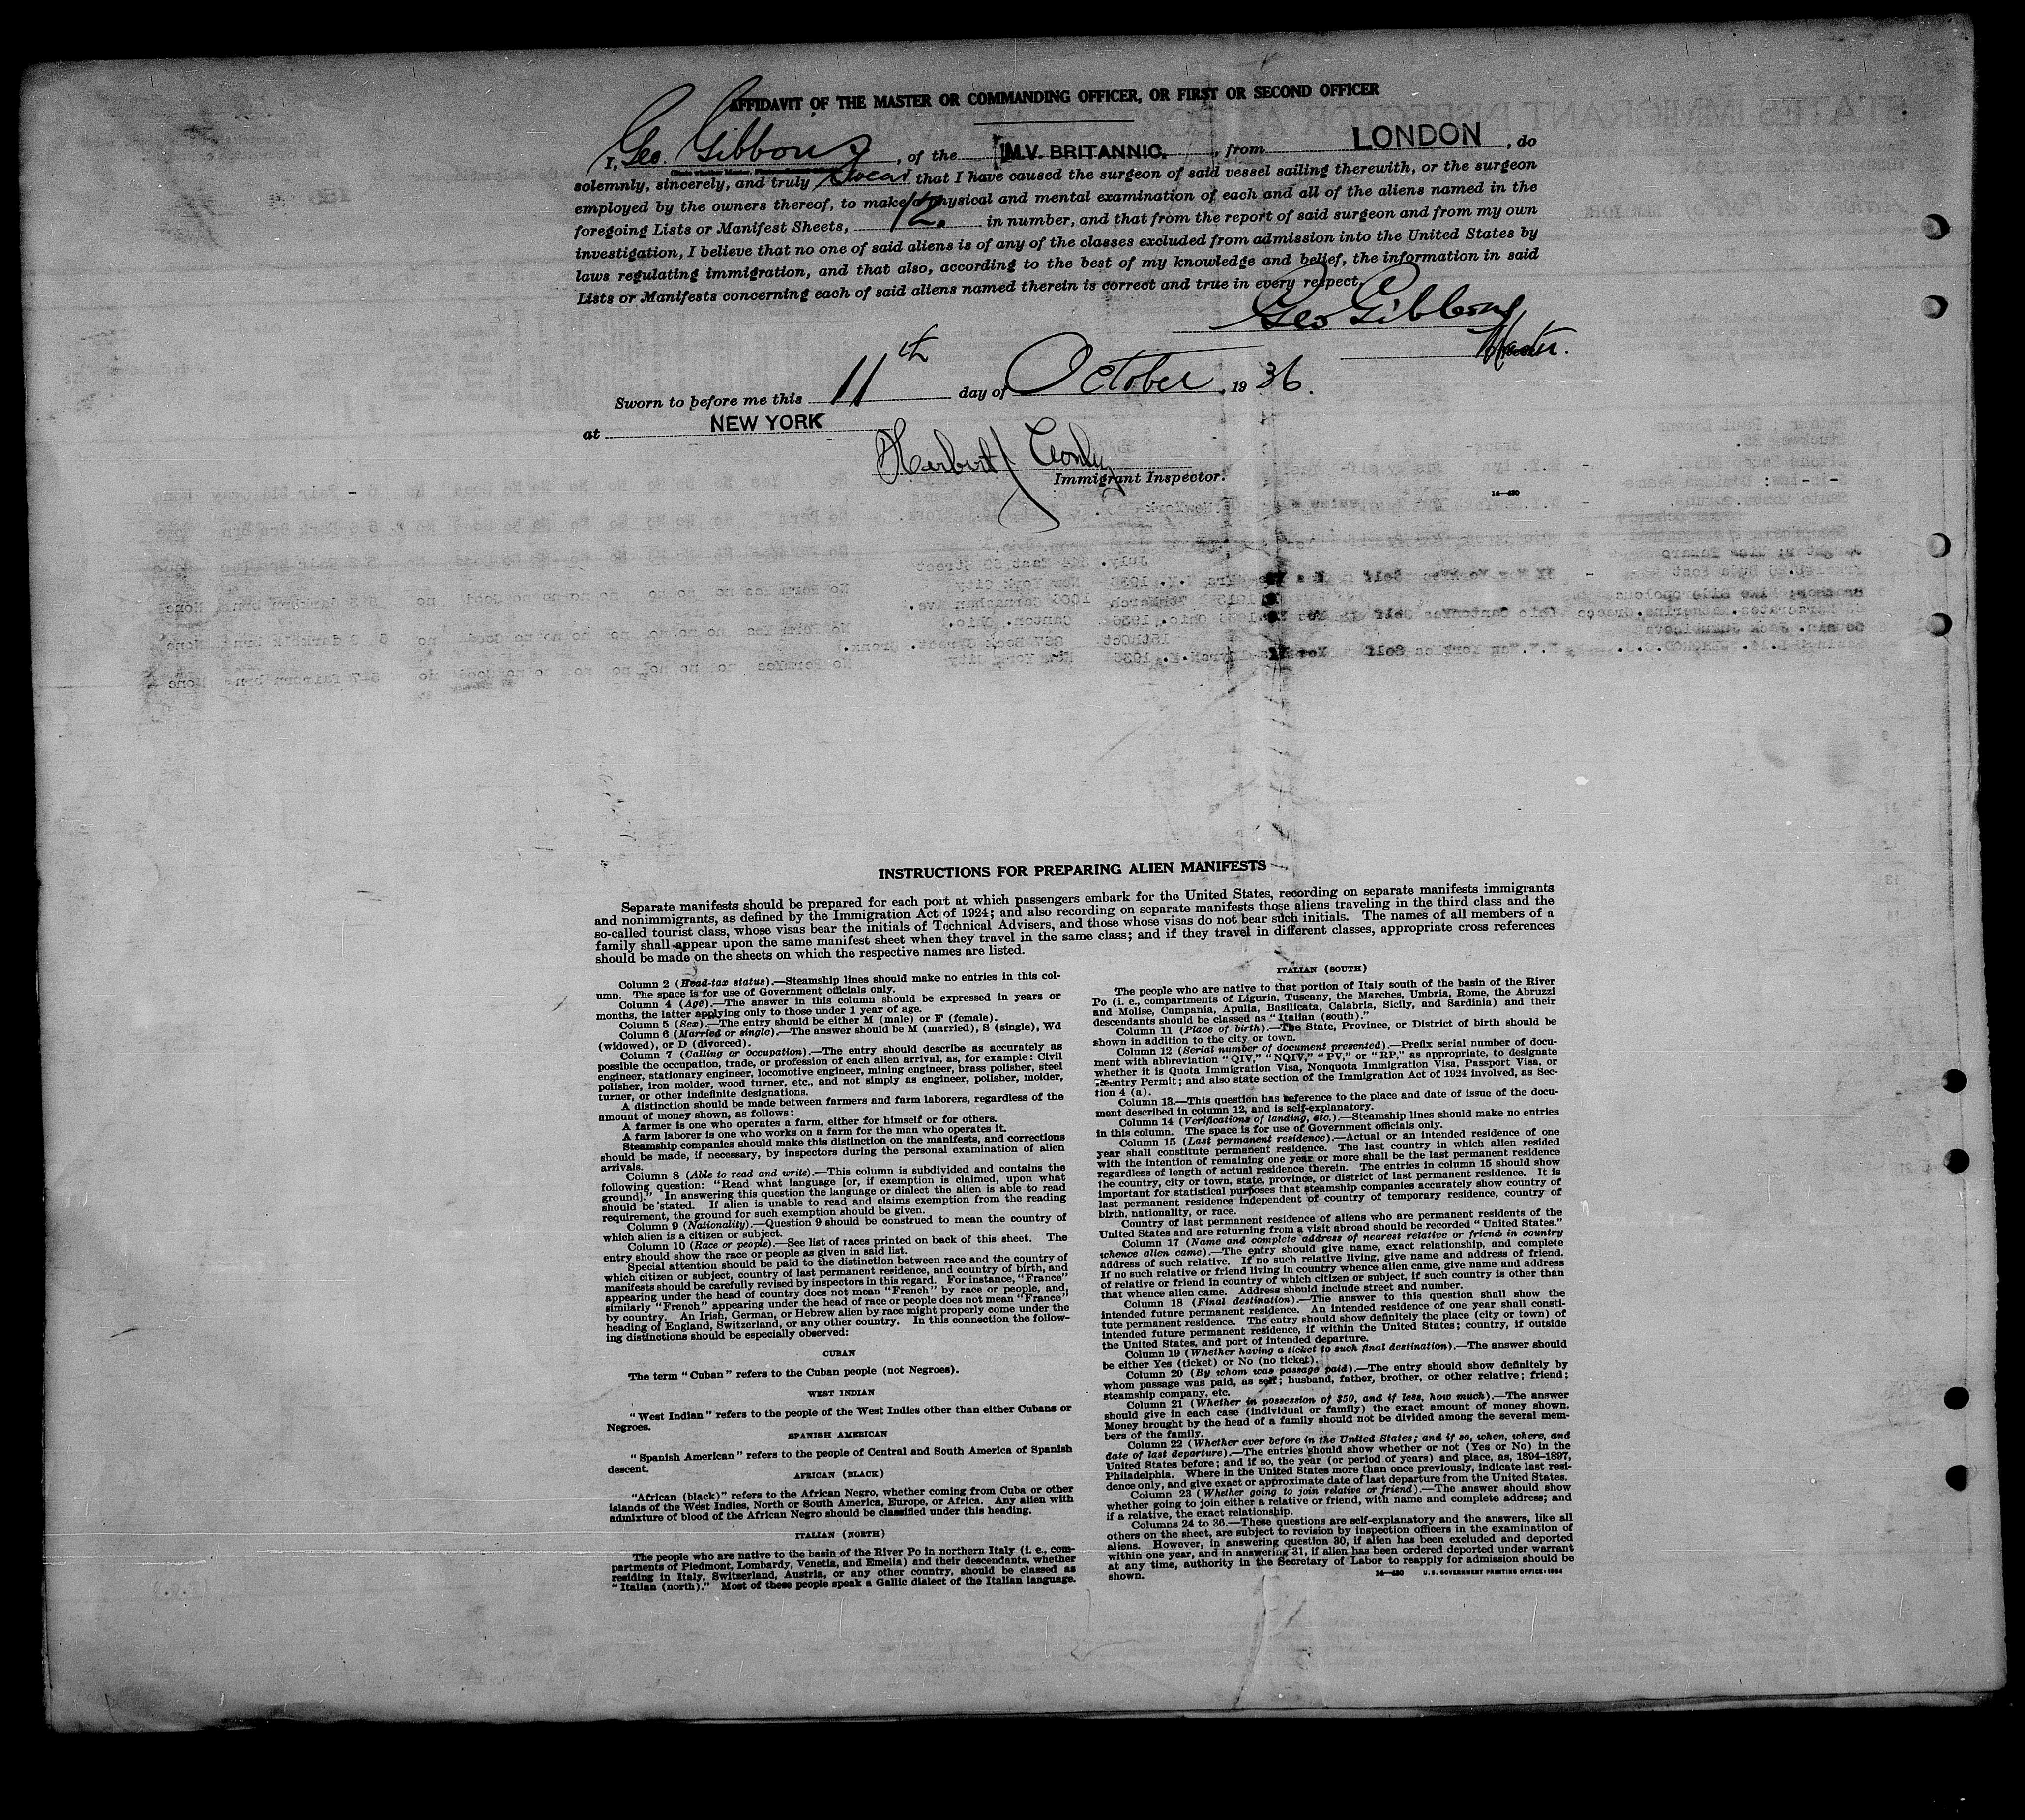 AFFIDAVIT OF THE MASTER OR COMMANDING OFFICER, OR FIRST OR SECOND OFFICER
I, Geo. Gibbons, of the M.V. BRITANNIC, from LONDON, do
solemnly, sincerely, and truly swear that I have caused the surgeon of said vessel sailing therewith, or the surgeon
employed by the owners thereof, to make a physical and mental examination of each and all of the aliens named in the
foregoing Lists or Manifest Sheets, 12. in number, and that from the report of said surgeon and from my own
investigation, I believe that no one of said aliens is of any of the classes excluded from admission into the United States by
laws regulating immigration, and that also, according to the best of my knowledge and belief, the information in said
Lists or Manifests concerning each of said aliens named therein is correct and true in every respect.
Geo Gibbons
Master.
Sworn to before me this 11th day of October, 1936.
at NEW YORK
Herbert
Immigrant Inspector.
14—430
INSTRUCTIONS FOR PREPARING ALIEN MANIFESTS
Separate manifests should be prepared for each port at which passengers embark for the United States, recording on separate manifests immigrants
and nonimmigrants, as defined by the Immigration Act of 1924; and also recording on separate manifests those aliens traveling in the third class and the
so-called tourist class, whose visas bear the initials of Technical Advisers, and those whose visas do not bear such initials. The names of all members of a
family shall appear upon the same manifest sheet when they travel in the same class; and if they travel in different classes, appropriate cross references
should be made on the sheets on which the respective names are listed.
Column 2 (Head-tax status).—Steamship lines should make no entries in this col-
umn. The space is for use of Government officials only.
Column 4 (Age).—The answer in this column should be expressed in years or
months, the latter applying only to those under 1 year of age.
Column 5 (Sex).—The entry should be either M (male) or F (female).
Column 6 (Married or single).—The answer should be M (married), S (single), Wd
(widowed), or D (divorced).
Column 7 (Calling or occupation).—The entry should describe as accurately as
possible the occupation, trade, or profession of each alien arrival, as, for example: Civil
engineer, stationary engineer, locomotive engineer, mining engineer, brass polisher, steel
polisher, iron molder, wood turner, etc., and not simply as engineer, polisher, molder,
turner, or other indefinite designations.
A distinction should be made between farmers and farm laborers, regardless of the
amount of money shown, as follows:
A farmer is one who operates a farm, either for himself or for others.
A farm laborer is one who works on a farm for the man who operates it.
Steamship companies should make this distinction on the manifests, and corrections
should be made, if necessary, by inspectors during the personal examination of alien
arrivals.
Column 8 (Able to read and write).—This column is subdivided and contains the
following question: "Read what language [or, if exemption is claimed, upon what
ground]." In answering this question the language or dialect the alien is able to read
should be stated. If alien is unable to read and claims exemption from the reading
requirement, the ground for such exemption should be given.
Column 9 (Nationality).—Question 9 should be construed to mean the country of
which alien is a citizen or subject.
Column 10 (Race or people).—See list of races printed on back of this sheet. The
entry should show the race or people as given in said list.
Special attention should be paid to the distinction between race and the country of
which citizen or subject, country of last permanent residence, and country of birth, and
manifests should be carefully revised by inspectors in this regard. For instance, "France"
appearing under the head of country does not mean "French" by race or people, and,
similarly "French" appearing under the head of race or people does not mean "France"
by country. An Irish, German, or Hebrew alien by race might properly come under the
heading of England, Switzerland, or any other country. In this connection the follow-
ing distinctions should be especially observed:
CUBAN
The term "Cuban" refers to the Cuban people (not Negroes).
WEST INDIAN
"West Indian" refers to the people of the West Indies other than either Cubans or
Negroes.
SPANISH AMERICAN
"Spanish American" refers to the people of Central and South America of Spanish
descent.
AFRICAN (BLACK)
"African (black)" refers to the African Negro, whether coming from Cuba or other
islands of the West Indies, North or South America, Europe, or Africa. Any alien with
admixture of blood of the African Negro should be classified under this heading.
ITALIAN (NORTH)
The people who are native to the basin of the River Po in northern Italy (i. e., com-
partments of Piedmont, Lombardy, Venetia, and Emelia) and their descendants, whether
residing in Italy, Switzerland, Austria, or any other country, should be classed as
"Italian (north)." Most of these people speak a Gallic dialect of the Italian language.
ITALIAN (SOUTH)
The people who are native to that portion of Italy south of the basin of the River
Po (i. e., compartments of Liguria, Tuscany, the Marches, Umbria, Rome, the Abruzzi
and Molise, Campania, Apulia, Basilicata, Calabria, Sicily, and Sardinia) and their
descendants should be classed as "Italian (south)."
Column 11 (Place of birth).—The State, Province, or District of birth should be
shown in addition to the city or town.
Column 12 (Serial number of document presented).—Prefix serial number of docu-
ment with abbreviation "QIV," "NQIV," "PV," or "RP," as appropriate, to designate
whether it is Quota Immigration Visa, Nonquota Immigration Visa, Passport Visa, or
Reentry Permit; and also state section of the Immigration Act of 1924 involved, as Sec-
tion 4 (a).
Column 13.—This question has reference to the place and date of issue of the docu-
ment described in column 12, and is self-explanatory.
Column 14 (Verifications of landing, etc.).—Steamship lines should make no entries
in this column. The space is for use of Government officials only.
Column 15 (Last permanent residence).—Actual or an intended residence of one
year shall constitute permanent residence. The last country in which alien resided
with the intention of remaining one year or more shall be the last permanent residence
regardless of length of actual residence therein. The entries in column 15 should show
the country, city or town, state, province, or district of last permanent residence. It is
important for statistical purposes that steamship companies accurately show country of
last permanent residence independent of country of temporary residence, country of
birth, nationality, or race.
Country of last permanent residence of aliens who are permanent residents of the
United States and are returning from a visit abroad should be recorded "United States."
Column 17 (Name and complete address of nearest relative or friend in country
whence alien came).—The entry should give name, exact relationship, and complete
address of such relative. If no such relative living, give name and address of friend.
If no such relative or friend living in country whence alien came, give name and address
of relative or friend in country of which citizen or subject, if such country is other than
that whence alien came. Address should include street and number.
Column 18 (Final destination).—The answer to this question shall show the
intended future permanent residence. An intended residence of one year shall consti-
tute permanent residence. The entry should show definitely the place (city or town) of
intended future permanent residence, if within the United States; country, if outside
the United States, and port of intended departure.
Column 19 (Whether having a ticket to such final destination).—The answer should
be either Yes (ticket) or No (no ticket).
Column 20 (By whom was passage paid).—The entry should show definitely by
whom passage was paid, as self; husband, father, brother, or other relative; friend;
steamship company, etc.
Column 21 (Whether in possession of $50, and if less, how much).—The answer
should give in each case (individual or family) the exact amount of money shown.
Money brought by the head of a family should not be divided among the several mem-
bers of the family.
Column 22 (Whether ever before in the United States; and if so, when, where, and
date of last departure).—The entries should show whether or not (Yes or No) in the
United States before; and if so, the year (or period of years) and place, as, 1894-1897,
Philadelphia. Where in the United States more than once previously, indicate last resi-
dence only, and give exact or approximate date of last departure from the United States.
Column 23 (Whether going to join relative or friend).—The answer should show
whether going to join either a relative or friend, with name and complete address; and
if a relative, the exact relationship.
Columns 24 to 36.—These questions are self-explanatory and the answers, like all
others on the sheet, are subject to revision by inspection officers in the examination of
aliens. However, in answering question 30, if alien has been excluded and deported
within one year, and in answering 31, if alien has been ordered deported under warrant
at any time, authority in the Secretary of Labor to reapply for admission should be
shown.
14—430 U. S. GOVERNMENT PRINTING OFFICE: 1934